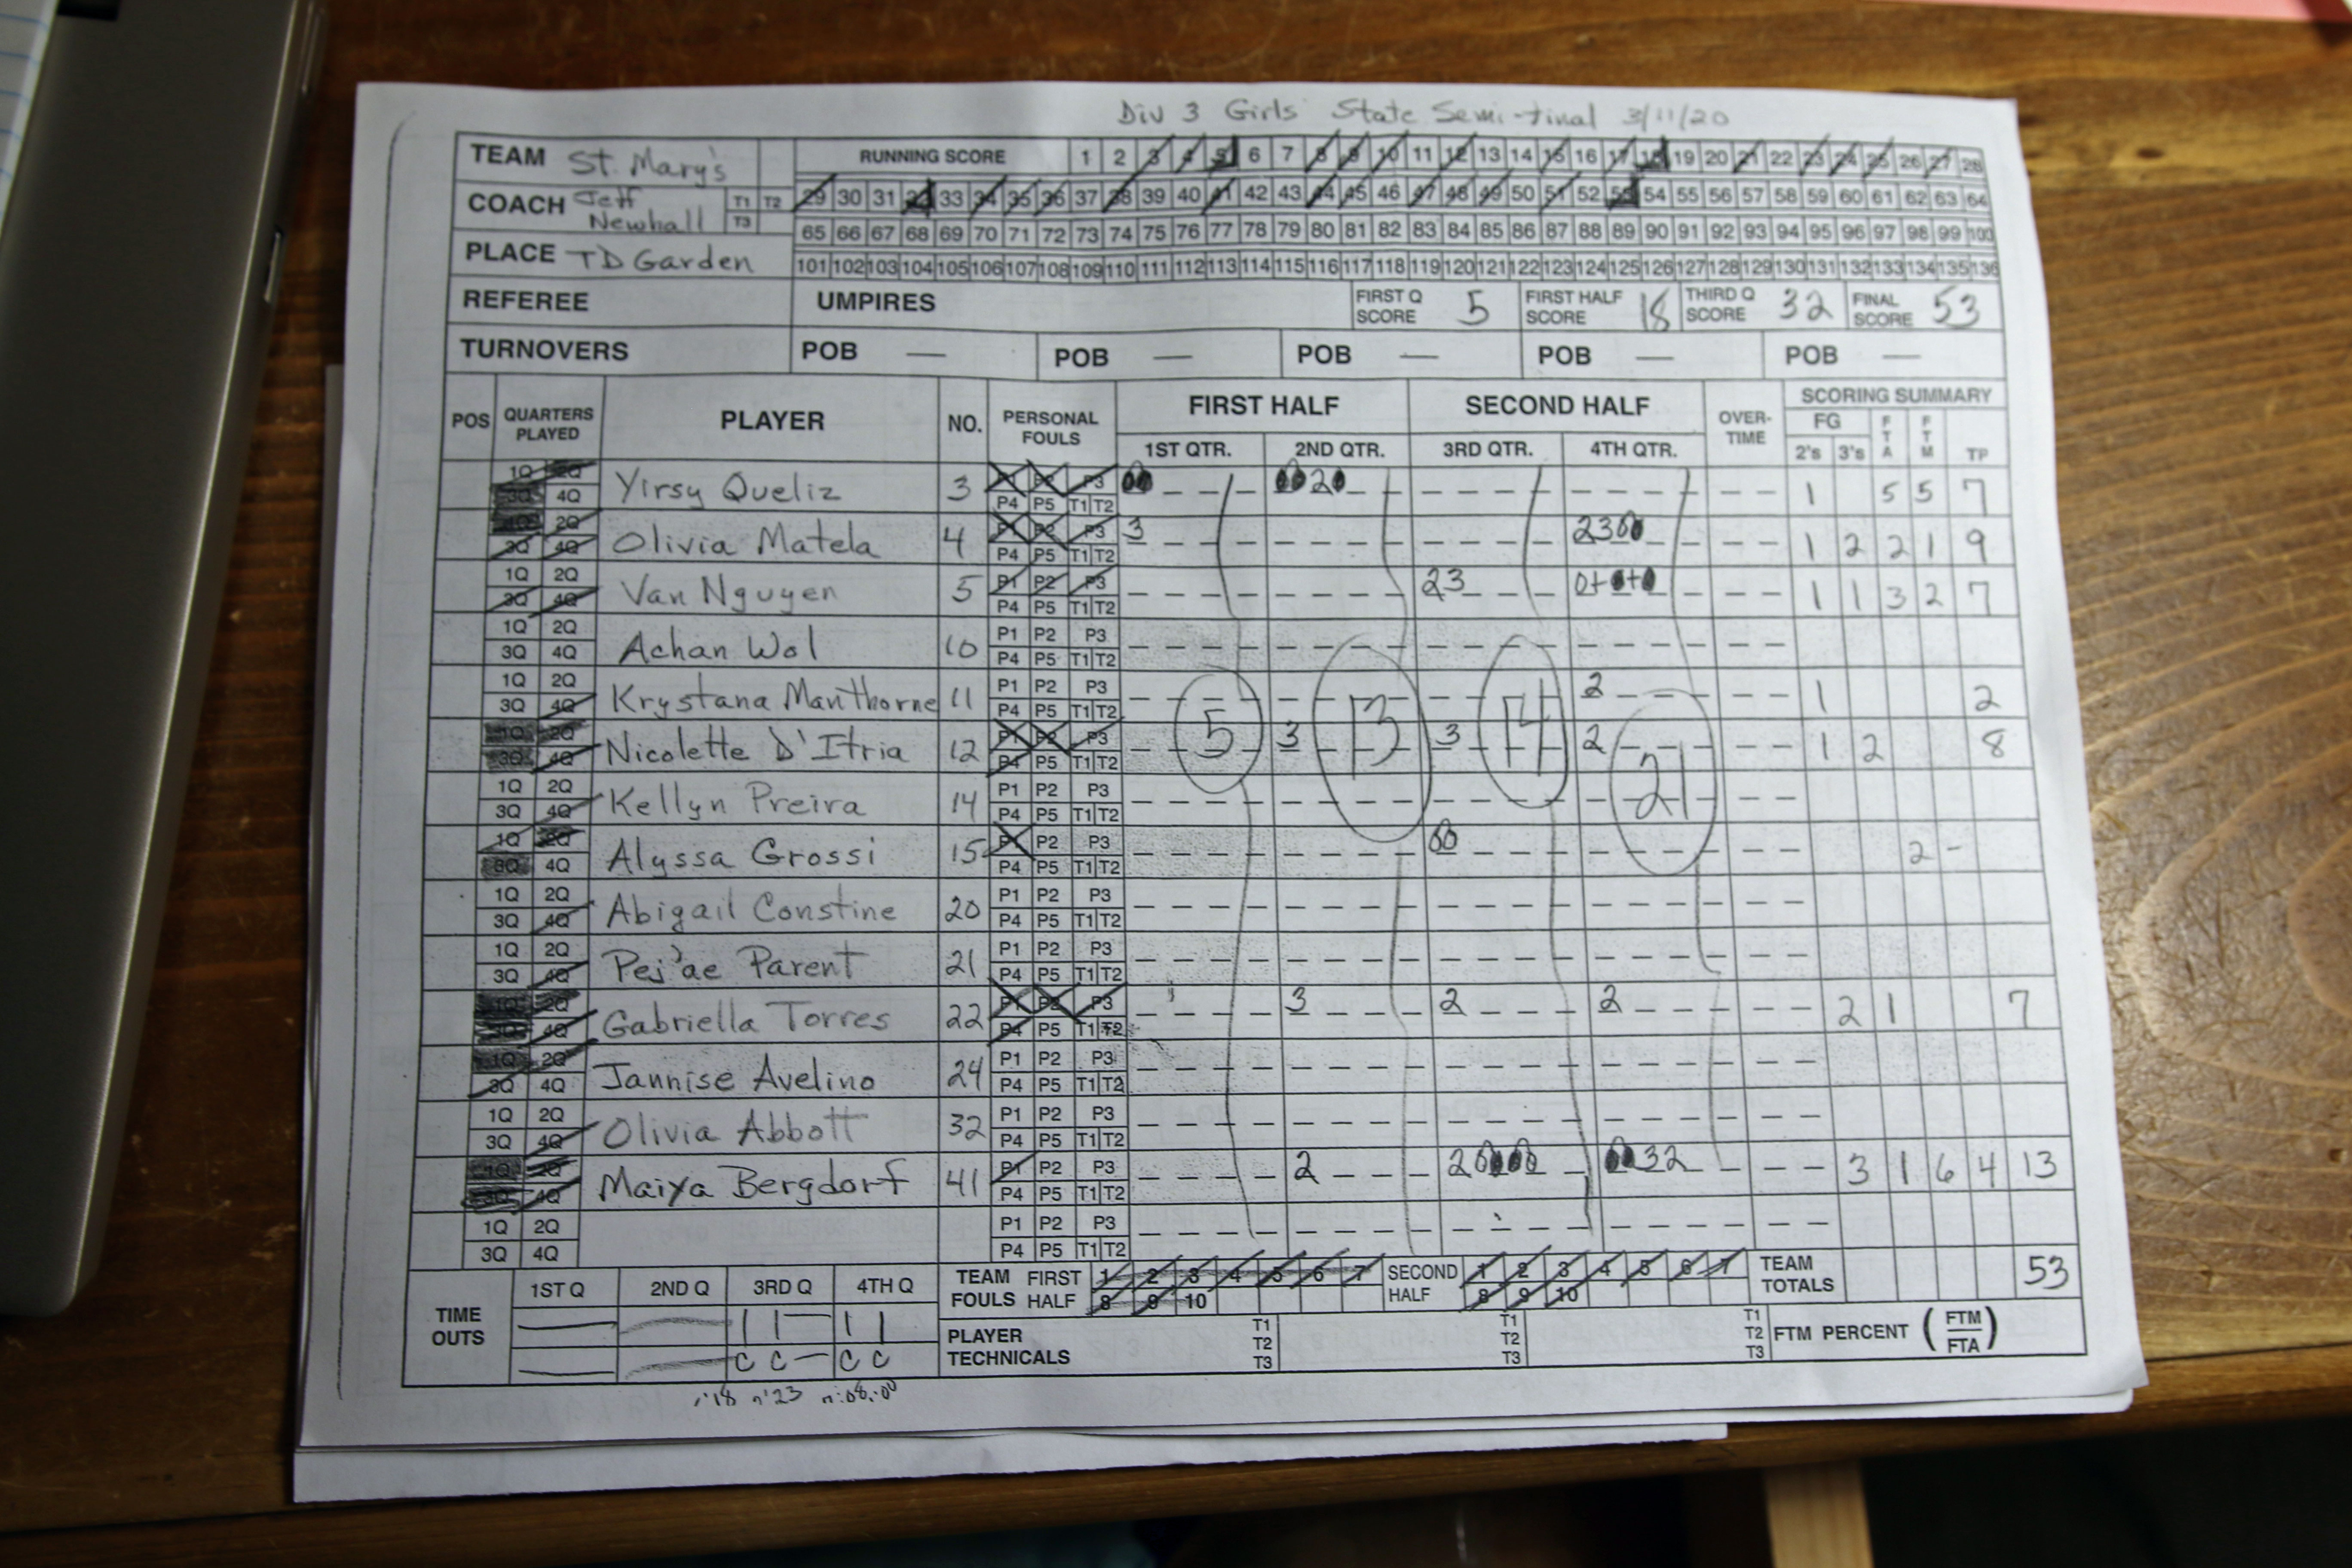 Div 3 Girls State Semi-final 3/11/20
TEAM St. Mary's RUNNING SCORE 1 2 3 4 5 6 7 8 9 10 11 12 13 14 15 16 17 18 19 20 21 22 23 24 25 26 27 28
COACH Jeff Newhall T1 T2 T3 29 30 31 32 33 34 35 36 37 38 39 40 41 42 43 44 45 46 47 48 49 50 51 52 53 54 55 56 57 58 59 60 61 62 63 64
65 66 67 68 69 70 71 72 73 74 75 76 77 78 79 80 81 82 83 84 85 86 87 88 89 90 91 92 93 94 95 96 97 98 99 100
PLACE TD Garden 101 102 103 104 105 106 107 108 109 110 111 112 113 114 115 116 117 118 119 120 121 122 123 124 125 126 127 128 129 130 131 132 133 134 135 136
REFEREE UMPIRES FIRST Q SCORE 5 FIRST HALF SCORE 18 THIRD Q SCORE 32 FINAL SCORE 53
TURNOVERS POB — POB — POB — POB — POB —
POS QUARTERS PLAYED PLAYER NO. PERSONAL FOULS FIRST HALF SECOND HALF OVER-TIME SCORING SUMMARY
1ST QTR. 2ND QTR. 3RD QTR. 4TH QTR. FG 2's 3's FTA FTM TP
1Q 2Q 3Q 4Q Yirsy Queliz 3 P1 P2 P3 P4 P5 T1 T2 1 5 5 7
1Q 2Q 3Q 4Q Olivia Matela 4 P1 P2 P3 P4 P5 T1 T2 3 1 2 2 1 9
1Q 2Q 3Q 4Q Van Nguyen 5 P1 P2 P3 P4 P5 T1 T2 23 1 1 3 2 7
1Q 2Q 3Q 4Q Achan Wol 10 P1 P2 P3 P4 P5 T1 T2
1Q 2Q 3Q 4Q Krystana Manthorne 11 P1 P2 P3 P4 P5 T1 T2 2 1 2
1Q 2Q 3Q 4Q Nicolette D'Itria 12 P1 P2 P3 P4 P5 T1 T2 5 3 13 3 14 2 21 1 2 8
1Q 2Q 3Q 4Q Kellyn Preira 14 P1 P2 P3 P4 P5 T1 T2
1Q 2Q 3Q 4Q Alyssa Grossi 15 P1 P2 P3 P4 P5 T1 T2 00 2 -
1Q 2Q 3Q 4Q Abigail Constine 20 P1 P2 P3 P4 P5 T1 T2
1Q 2Q 3Q 4Q Pei'ae Parent 21 P1 P2 P3 P4 P5 T1 T2
1Q 2Q 3Q 4Q Gabriella Torres 22 P1 P2 P3 P4 P5 T1 T2 3 2 2 2 1 7
1Q 2Q 3Q 4Q Jannise Avelino 24 P1 P2 P3 P4 P5 T1 T2
1Q 2Q 3Q 4Q Olivia Abbott 32 P1 P2 P3 P4 P5 T1 T2
1Q 2Q 3Q 4Q Maiya Bergdorf 41 P1 P2 P3 P4 P5 T1 T2 2 3 1 6 4 13
1Q 2Q 3Q 4Q P1 P2 P3 P4 P5 T1 T2
TIME OUTS 1ST Q 2ND Q 3RD Q 4TH Q
TEAM FOULS FIRST HALF 1 2 3 4 5 6 7 8 9 10 SECOND HALF 1 2 3 4 5 6 7 8 9 10 TEAM TOTALS 53
PLAYER TECHNICALS T1 T2 T3 T1 T2 T3 T1 T2 T3 FTM PERCENT (FTM/FTA)
C C — C C